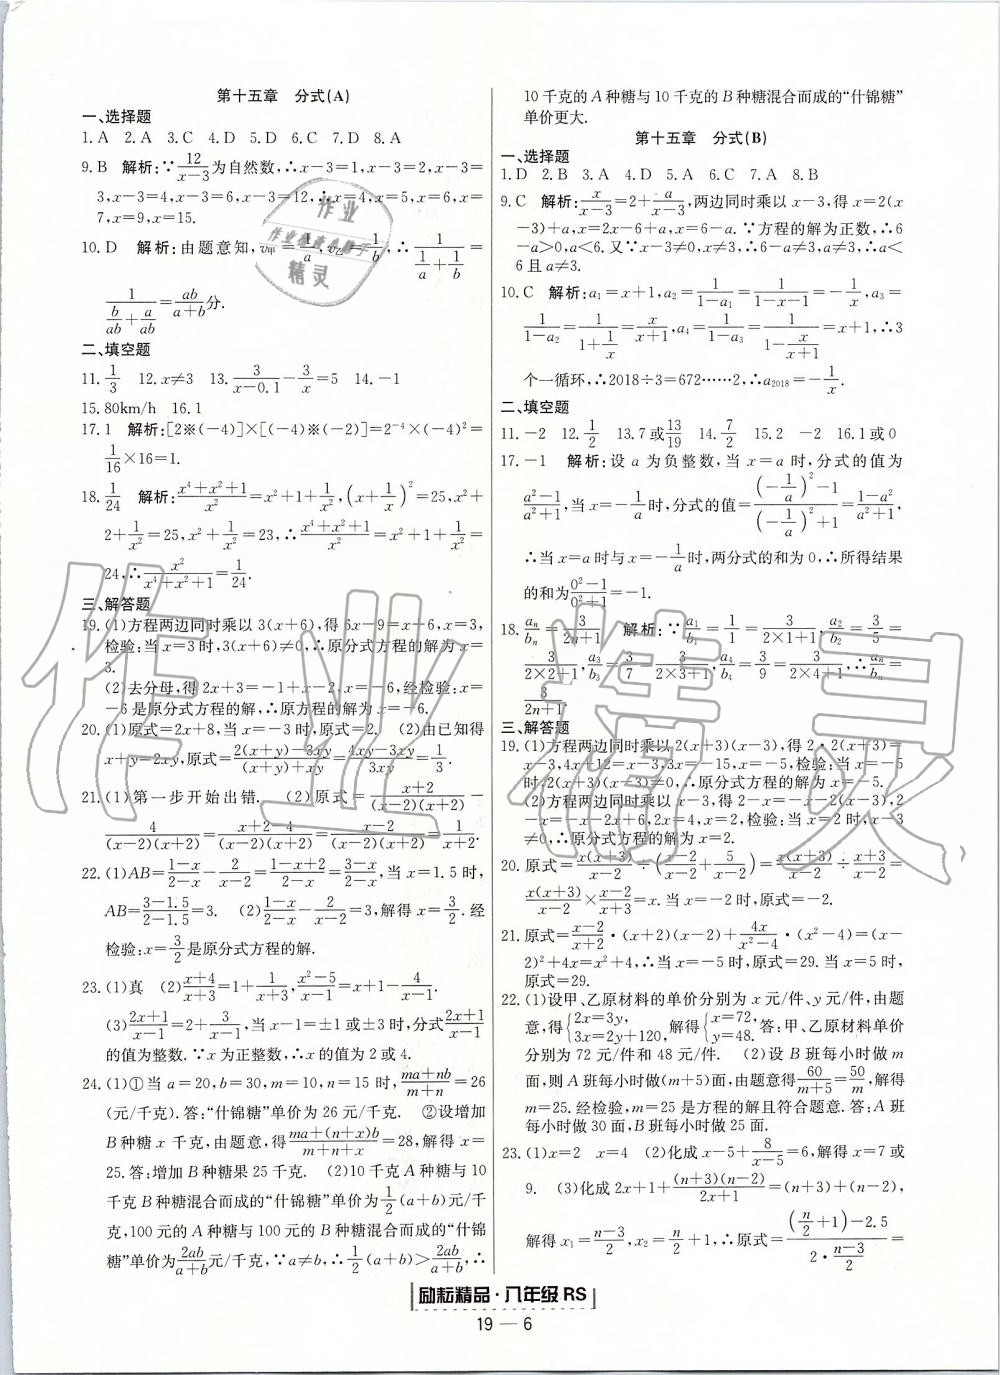 第十五章　分式(A)
一、选择题
1. A　2. A　3. C　4. D　5. D　6. C　7. D　8. A
9. B　解析:∵12/(x-3)为自然数,∴x-3=1,x-3=2,x-3=
3,x-3=4,x-3=6,x-3=12,∴x=4,x=5,x=6,x=
7,x=9,x=15.
10. D　解析:由题意知,v甲=1/a,v乙=1/b,∴1/(1/a+1/b)=
1/(b/ab+a/ab)=ab/(a+b)分.
二、填空题
11. 1/3　12. x≠3　13. 3/(x-0.1)-3/x=5　14. -1
15. 80km/h　16. 1
17. 1　解析:[2※(-4)]×[(-4)※(-2)]=2⁻⁴×(-4)²=
1/16×16=1.
18. 1/24　解析:(x⁴+x²+1)/x²=x²+1+1/x²,(x+1/x)²=25,x²+
2+1/x²=25,x²+1/x²=23,∴(x⁴+x²+1)/x²=x²+1+1/x²=
24,∴x²/(x⁴+x²+1)=1/24.
三、解答题
19. (1)方程两边同时乘以3(x+6),得6x-9=x+6,x=3,
检验:当x=3时,3(x+6)≠0,∴原分式方程的解为x=
3.
(2)去分母,得2x+3=-1+x-2,x=-6,经检验:x=
-6是原分式方程的解,∴原方程的解为x=-6.
20. (1)原式=2x+8,当x=-3时,原式=2.　(2)由已知得
x+y=2xy,原式=(2(x+y)-3xy)/((x+y)+xy)=(4xy-3xy)/3xy=1/3.
21. (1)第一步开始出错.　(2)原式=(x+2)/((x-2)(x+2))-
4/((x-2)(x+2))=(x+2-4)/((x-2)(x+2))=(x-2)/((x-2)(x+2))=1/(x+2).
22. (1)AB=(1-x)/(2-x)-2/(x-2)=(1-x+2)/(2-x)=(3-x)/(2-x),当x=1.5时,
AB=(3-1.5)/(2-1.5)=3.　(2)(1-x)/(2-x)-2/(x-2)=3,解得x=3/2.经
检验:x=3/2是原分式方程的解.
23. (1)真　(2)(x+4)/(x+3)=1+1/(x+3),(x²-5)/(x-1)=x+1-4/(x-1).
(3)(2x+1)/(x-1)=2+3/(x-1),当x-1=±1或±3时,分式(2x+1)/(x-1)
的值为整数.∵x为正整数,∴x的值为2或4.
24. (1)①当a=20,b=30,m=10,n=15时,(ma+nb)/(m+n)=26
(元/千克).答:“什锦糖”单价为26元/千克.　②设增加
B种糖x千克,由题意,得(ma+(n+x)b)/(m+n+x)=28,解得x=
25.答:增加B种糖果25千克.　(2)10千克A种糖与10
千克B种糖混合而成的“什锦糖”单价为1/2(a+b)元/千
克,100元的A种糖与100元的B种糖混合而成的“什锦
糖”单价为2ab/(a+b)元/千克,∵a≠b,∴1/2(a+b)>2ab/(a+b),∴
10千克的A种糖与10千克的B种糖混合而成的“什锦糖”
单价更大.
第十五章　分式(B)
一、选择题
1. D　2. B　3. A　4. D　5. A　6. C　7. A　8. B
9. C　解析:x/(x-3)=2+a/(x-3),两边同时乘以x-3,得x=2(x
-3)+a,x=2x-6+a,x=6-a.∵方程的解为正数,∴6
-a>0,a<6.又∵x-3≠0,x≠3,∴6-a≠3,a≠3,∴a<
6且a≠3.
10. C　解析:a₁=x+1,a₂=1/(1-a₁)=1/(1-x-1)=-1/x,a₃=
1/(1-a₂)=1/(1+1/x)=x/(x+1),a₄=1/(1-a₃)=1/(1-x/(x+1))=x+1,∴3
个一循环,∴2018÷3=672……2,∴a₂₀₁₈=-1/x.
二、填空题
11. -2　12. 1/2　13. 7或13/19　14. 7/2　15. 2　-2　16. 1或0
17. -1　解析:设a为负整数,当x=a时,分式的值为
(a²-1)/(a²+1),当x=-1/a时,分式的值=((-1/a)²-1)/((-1/a)²+1)=(1-a²)/(a²+1),
∴当x=a时与x=-1/a时,两分式的和为0,∴所得结果
的和为(0²-1)/(0²+1)=-1.
18. aₙ/bₙ=3/(2n+1)　解析:∵a₁/b₁=1/1=3/(2×1+1),a₂/b₂=3/5=
3/(2×2+1),a₃/b₃=3/7=3/(2×3+1),a₄/b₄=3/9=3/(2×4+1),∴aₙ/bₙ=
3/(2n+1).
三、解答题
19. (1)方程两边同时乘以2(x+3)(x-3),得2·2(x+3)=
x-3,4x+12=x-3,3x=-15,x=-5,检验:当x=-5
时,2(x+3)(x-3)≠0,∴原分式方程的解为x=-5.
(2)方程两边同时乘以x-3,得2-x=-2(x-3),2
-x=-2x+6,2x=4,x=2,检验:当x=2时,x-3
≠0,∴原分式方程的解为x=2.
20. 原式=x(x+3)/(x-2)÷((x-2)/(x-2)+5/(x-2))=x(x+3)/(x-2)÷(x+3)/(x-2)=
x(x+3)/(x-2)×(x-2)/(x+3)=x.当x=-2时,原式=-2.
21. 原式=(x-2)/(x+2)·(x+2)(x-2)+4x/(x²-4)·(x²-4)=(x-
2)²+4x=x²+4,∴当x=-5时,原式=29.当x=5时,
原式=29.
22. (1)设甲、乙原材料的单价分别为x元/件、y元/件,由题
意,得{2x=3y, 3x=2y+120,解得{x=72, y=48.答:甲、乙原材料单价
分别为72元/件和48元/件.　(2)设B班每小时做m
面,则A班每小时做(m+5)面,由题意得60/(m+5)=50/m,解得
m=25.经检验,m=25是方程的解且符合题意.答:A班
每小时做30面,B班每小时做25面.
23. (1)x=2　x=4　(2)化成x-5+8/(x-5)=6,解得x=7或
9.　(3)化成2x+1+(n+3)(n-2)/(2x+1)=(n+3)+(n-2),
解得x₁=(n-3)/2,x₂=n/2+1,∴原式=((n/2+1)-2.5)/(2·(n-3)/2)=
励耘精品·八年级RS
19—6
作业精灵